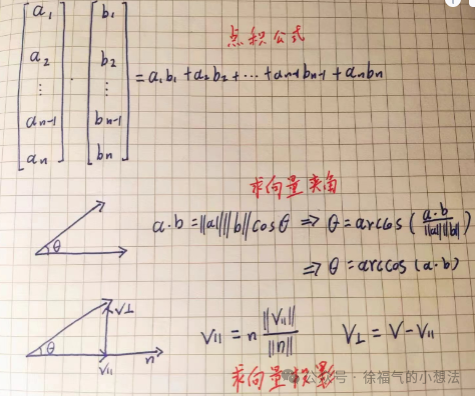 点积公式
[a₁ a₂ ⋮ aₙ₋₁ aₙ] · [b₁ b₂ ⋮ bₙ₋₁ bₙ] = a₁b₁ + a₂b₂ + ⋯ + aₙ₋₁bₙ₋₁ + aₙbₙ
求向量夹角
θ
a·b = ||a||||b||cosθ ⇒ θ = arccos(a·b / ||a||||b||)
⇒ θ = arccos(a·b)
θ V⊥ V∥ n
V∥ = n ||V∥|| / ||n|| V⊥ = V - V∥
求向量投影
公众号 · 徐福气的小想法